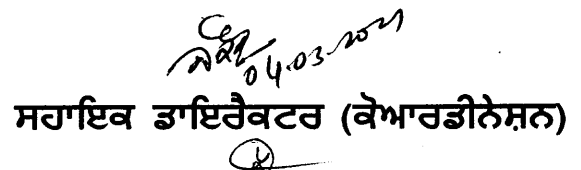 04.03.2021
ਸਹਾਇਕ ਡਾਇਰੈਕਟਰ (ਕੋਆਰਡੀਨੇਸ਼ਨ)